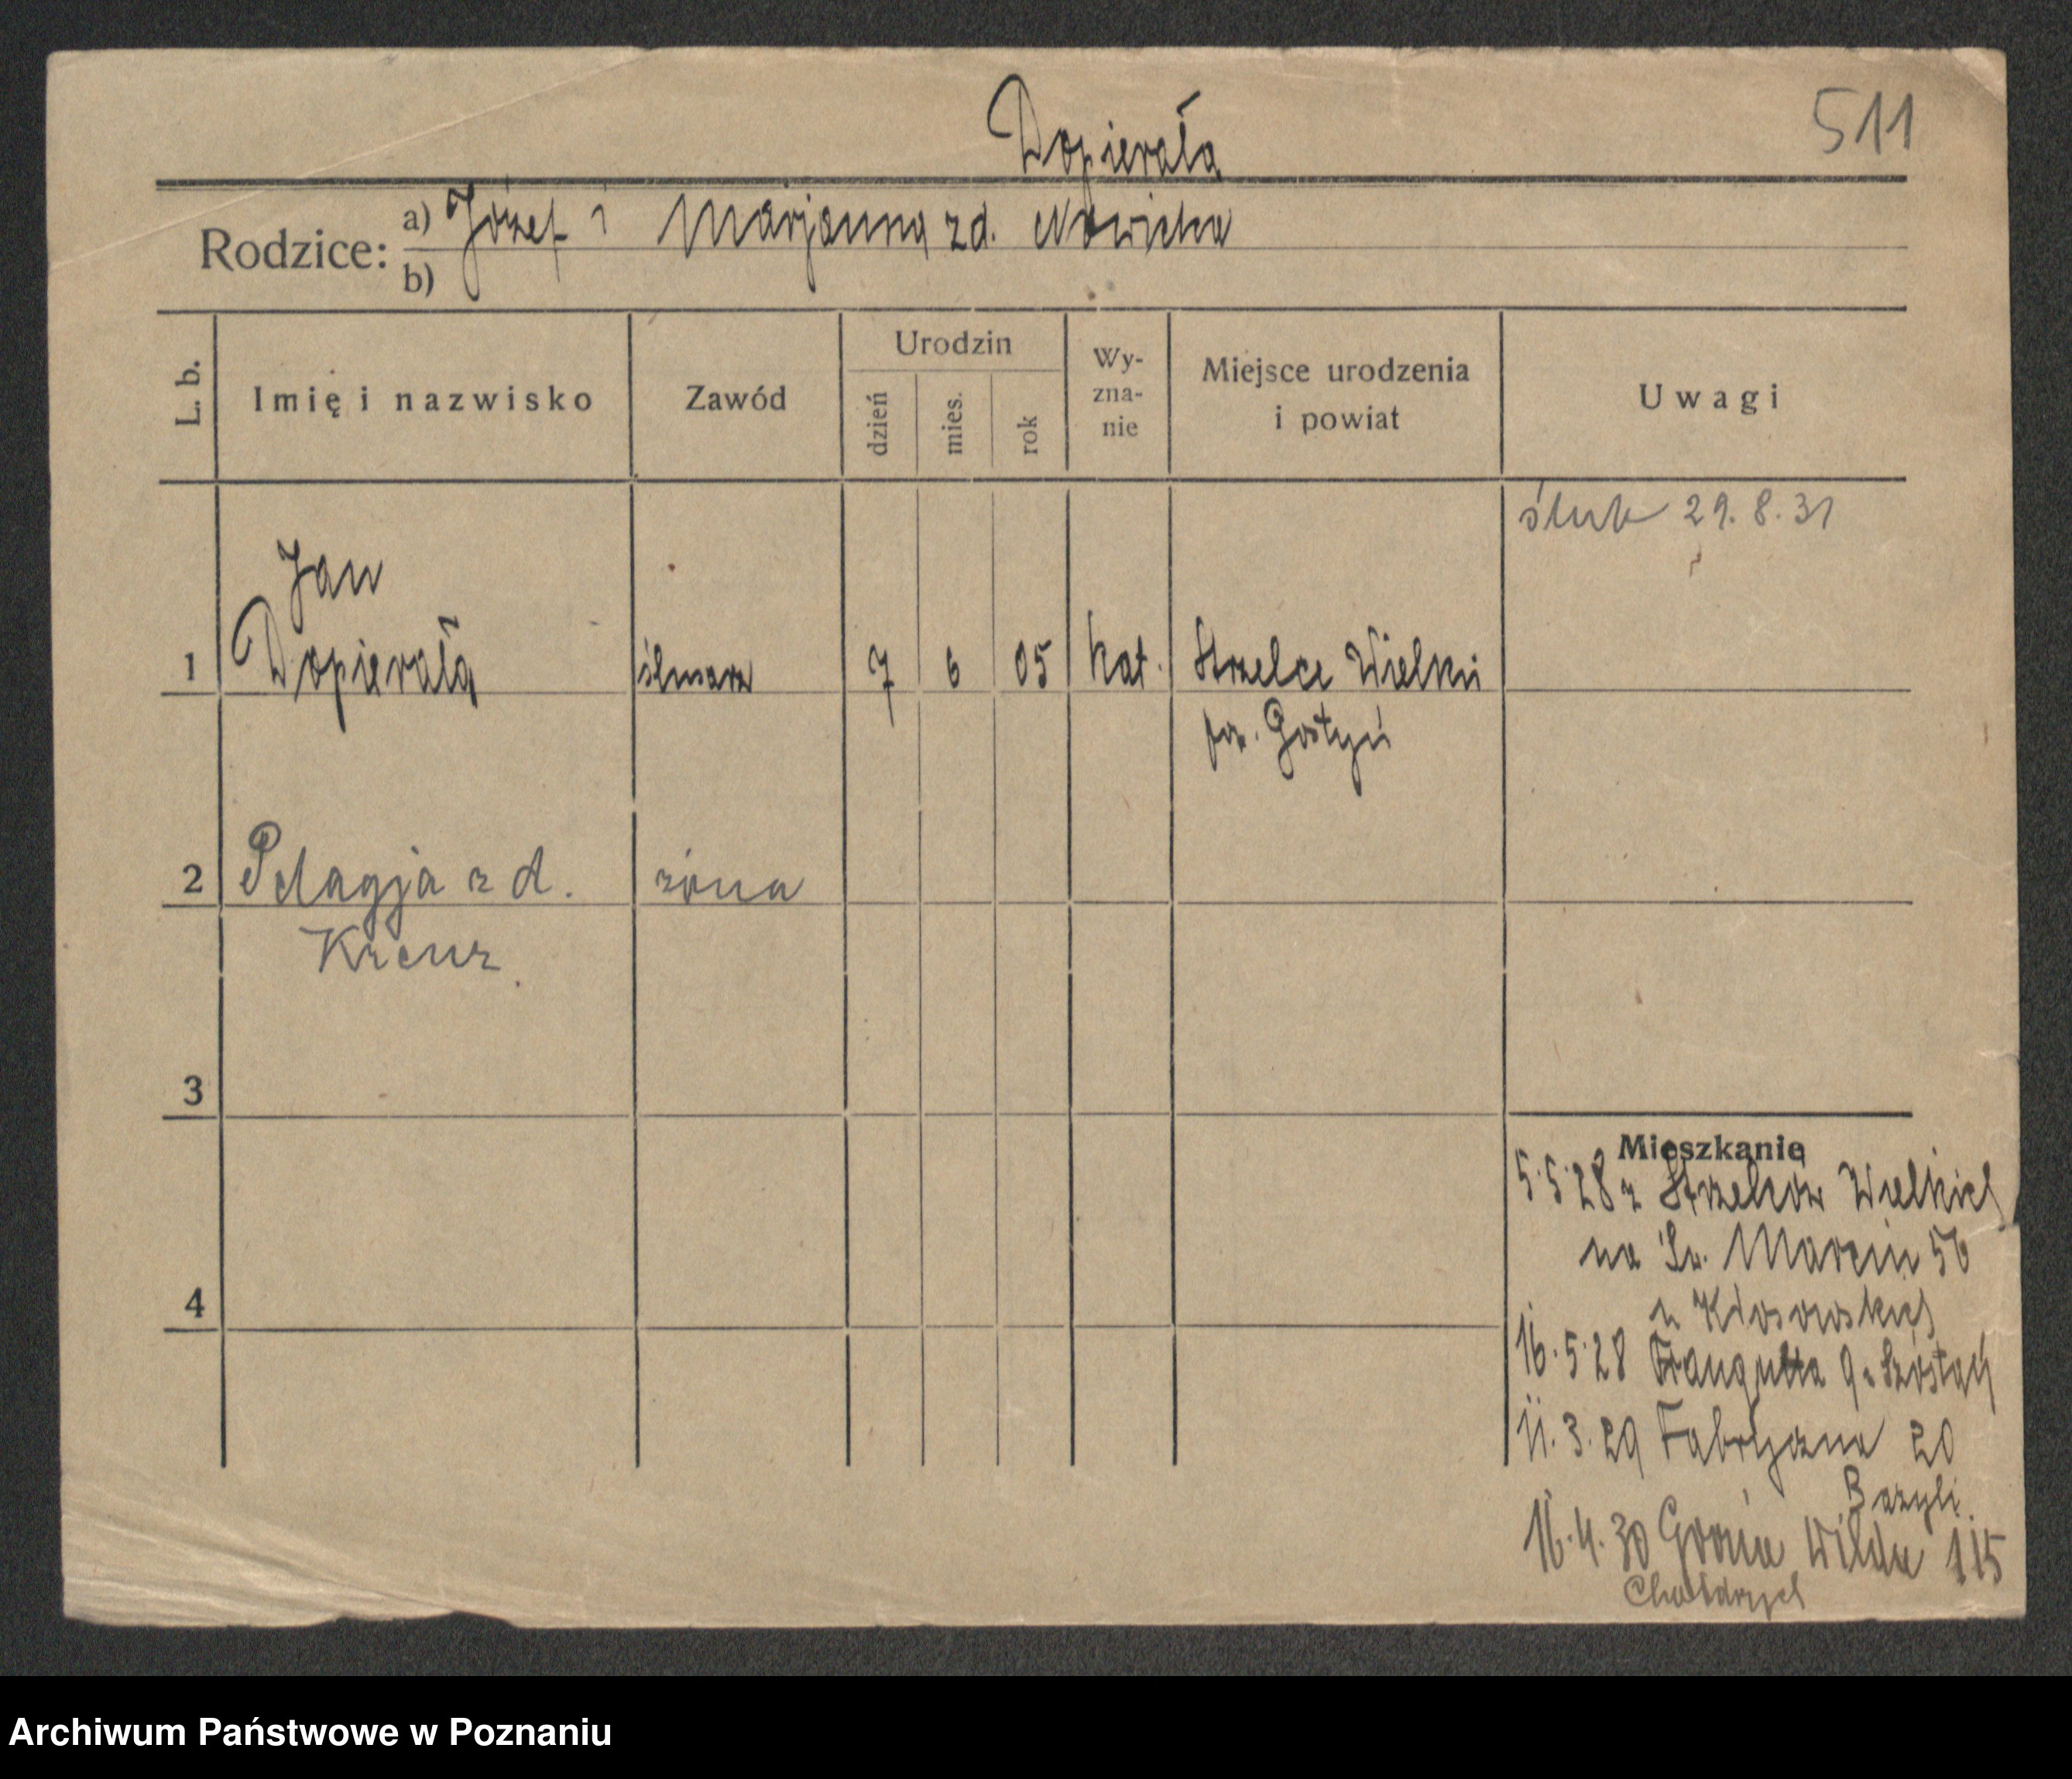 Dopierała
511
Rodzice: a) Józef i Marjanna zd. Nowicka
b)
L. b.
Imię i nazwisko
Zawód
Urodzin
dzień
mies.
rok
Wy-
zna-
nie
Miejsce urodzenia
i powiat
Uwagi
ślub 29.8.31
Jan
1 Dopierała ślusarz 7 6 05 kat. Strzelce Wielkie
pow. Gostyń
2 Pelagja z d. żona
3
4
Mieszkanie
5.5.28 z Strzelców Wielkich
na Św. Marcin 56
u Kłosowskich
16.5.28 Traugutta 9
11.3.29 Fabryczna 20
Bazyli
16.4.30 Górna Wilda 115
Archiwum Państwowe w Poznaniu